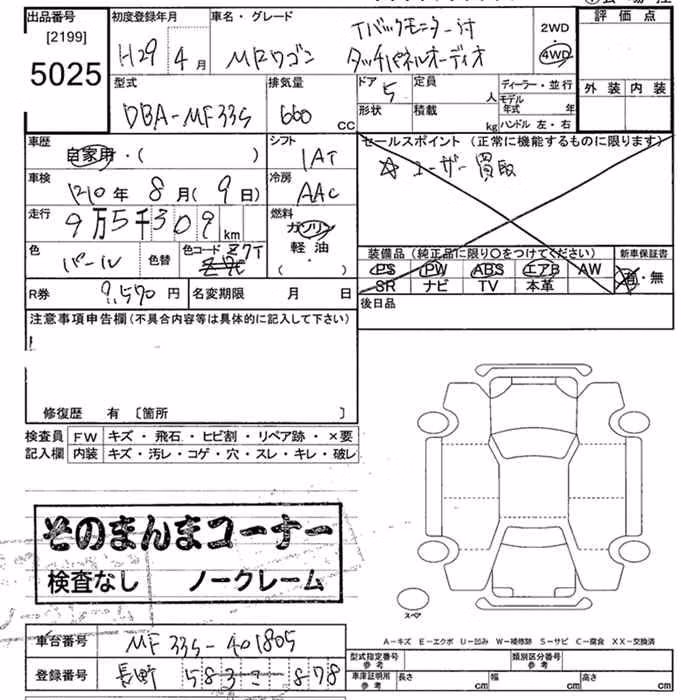 出品番号 初度登録年月 車名・グレード 評価点
[2199]
5025
H29 4月 MRワゴン
Tバックモニター付
タッチパネルオーディオ
2WD
4WD
外装 内装
型式 排気量 ドア 定員 ディーラー・並行
DBA-MF33S 660 CC 5 人 モデル年式 年
形状 積載 kg ハンドル 左・右
車歴 シフト セールスポイント（正常に機能するものに限ります）
自家用・( ) IAT ☆ユーザー買取
車検 冷房
年 8月(9日) AAC
走行 燃料
9万5千309km ガソリン
軽油
( ・ )
色 パール 色替 色コード Z7T
装備品（純正品に限り○をつけてください） 新車保証書
PS PW ABS エアB AW 有・無
SR ナビ TV 本革
R券 9,570円 名変期限 月 日 後日品
注意事項申告欄(不具合内容等は具体的に記入して下さい)
修復歴 有 〔箇所 〕
検査員 FW キズ・飛石・ヒビ割・リペア跡・×要
記入欄 内装 キズ・汚レ・コゲ・穴・スレ・キレ・破レ
そのまんまコーナー
検査なし ノークレーム
スペア
A－キズ E－エクボ U－凹み W－補修跡 S－サビ C－腐食 XX－交換済
車台番号 MF33S-401805
型式指定番号 参考 類別区分番号 参考
登録番号 長野 583 878
車庫証明用 参考 長さ cm 幅 cm 高さ cm